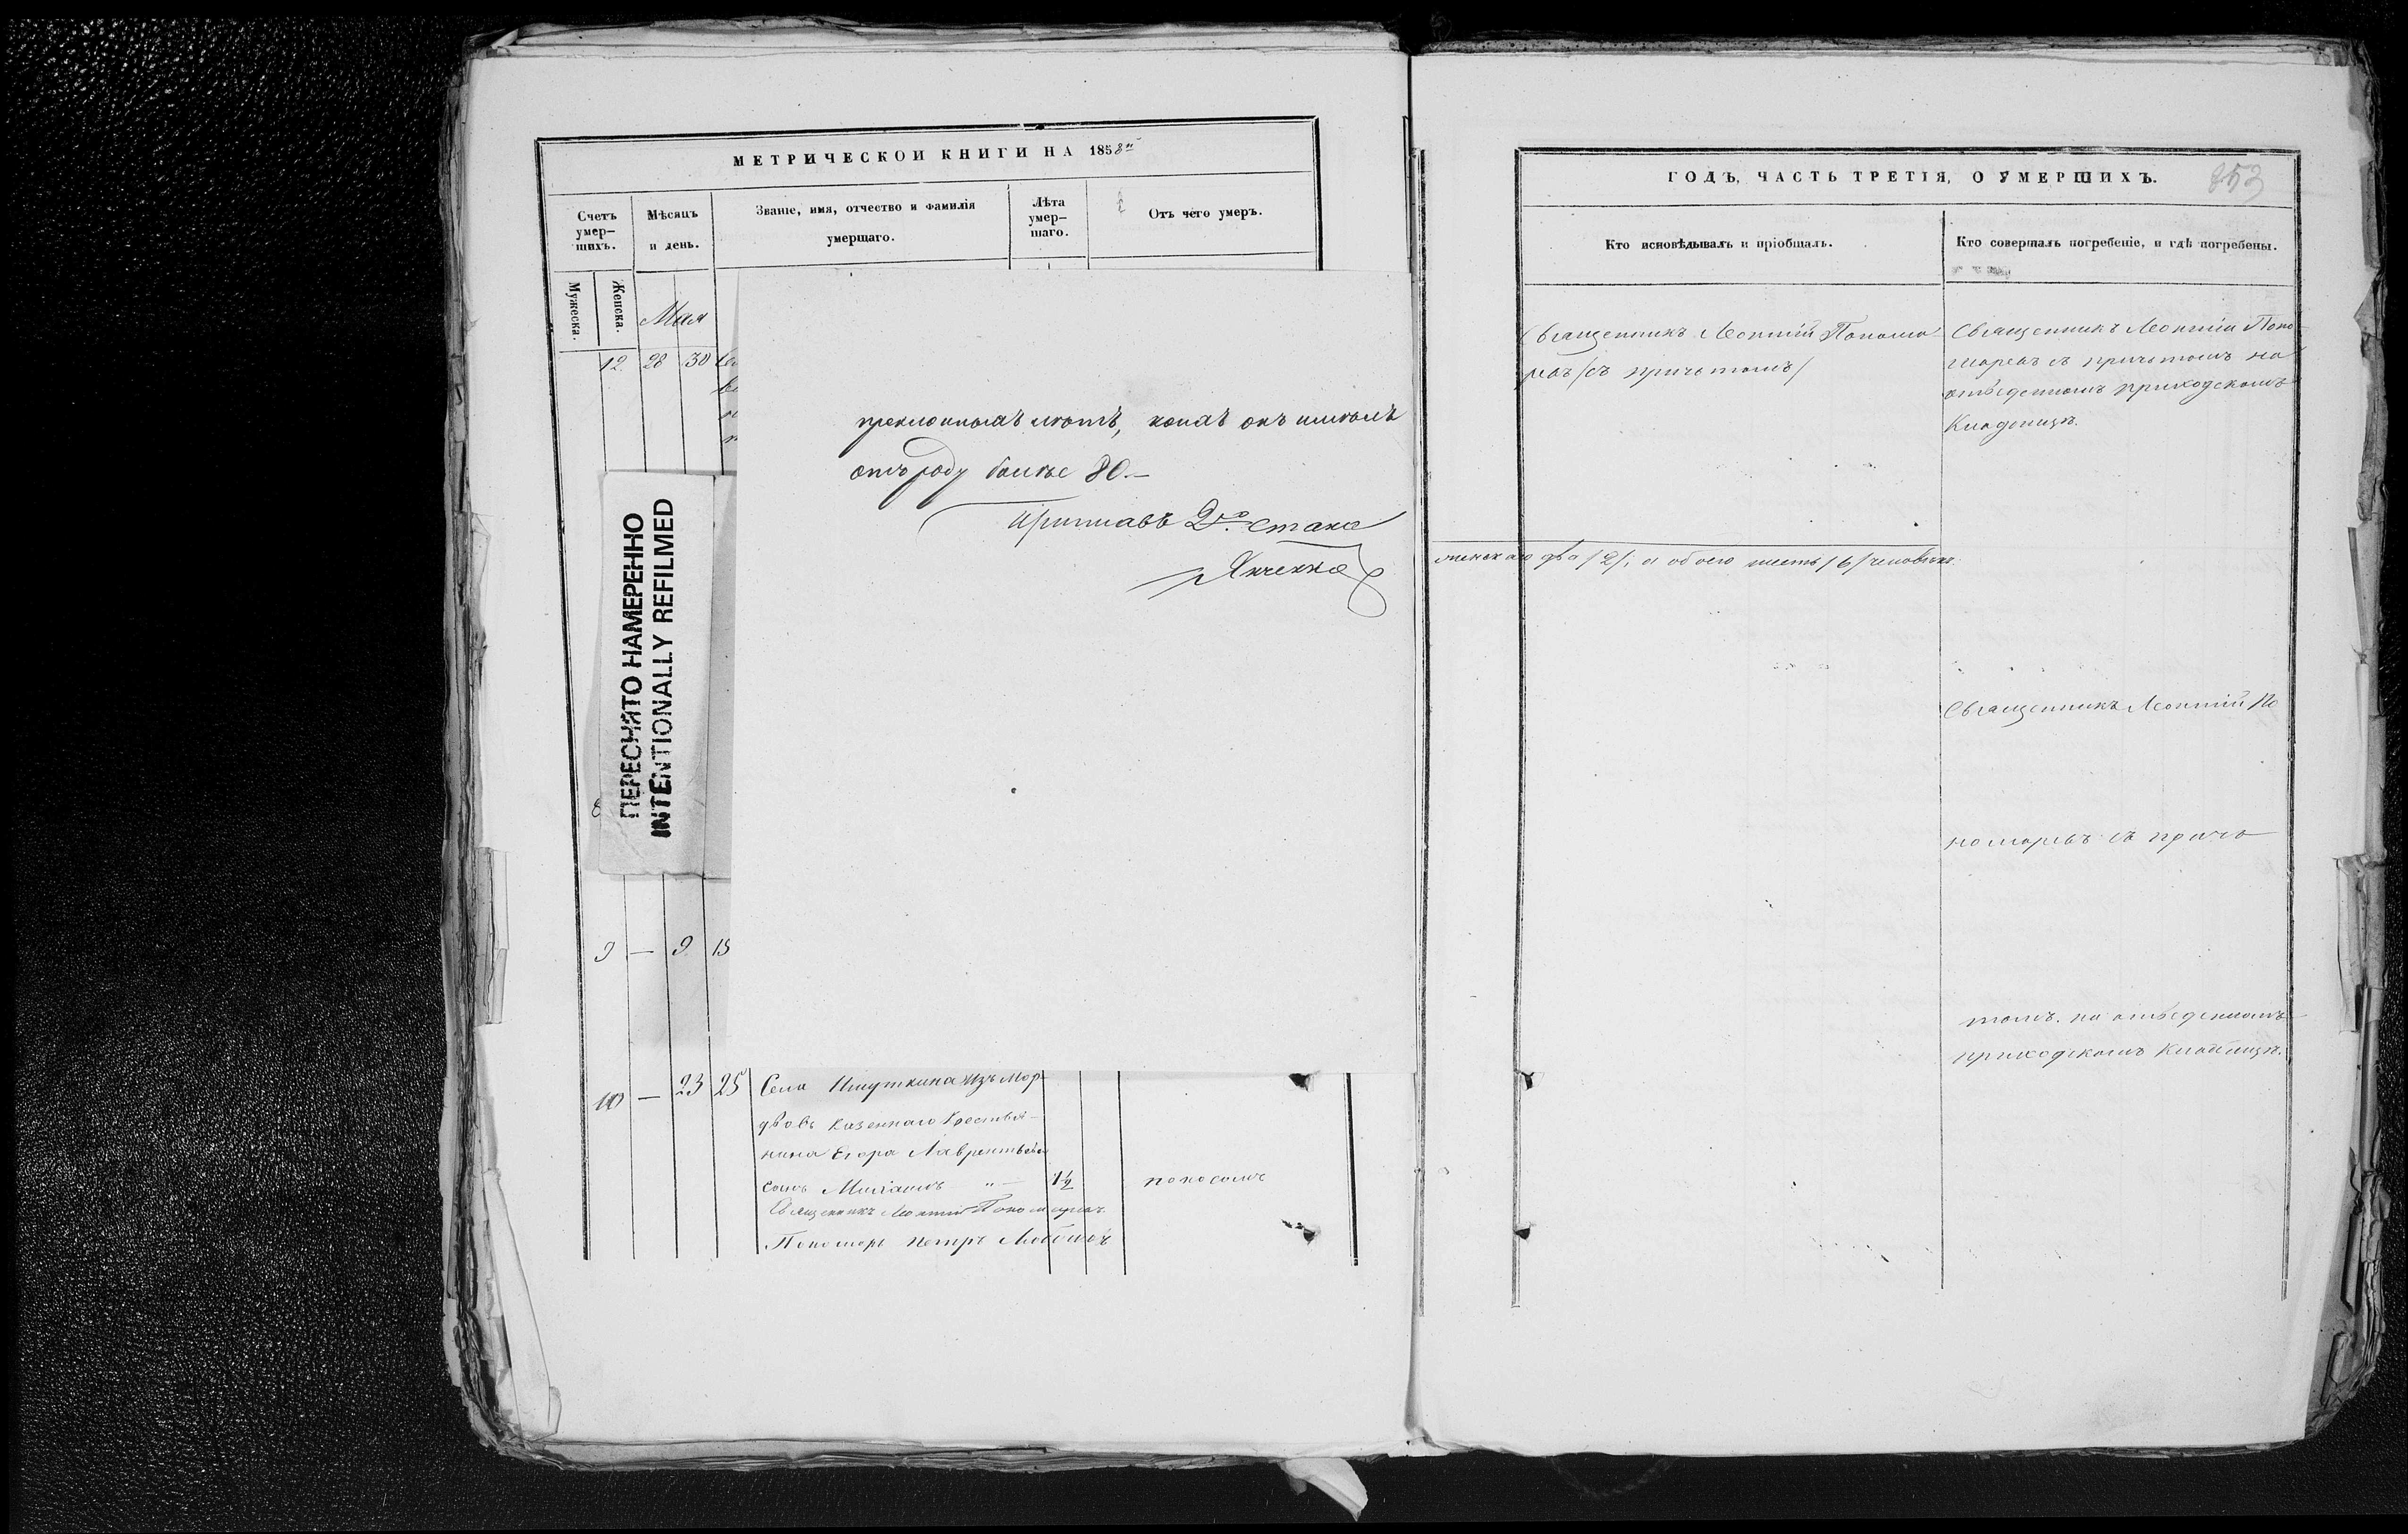 МЕТРИЧЕСКОЙ КНИГИ НА 1858й
Счетъ умер-шихъ.
Мѣсяцъ и день.
Званіе, имя, отчество и фамилія умершаго.
Лѣта умер-шаго.
Отъ чего умеръ.
Мужеска.
Женска.
Мая
12 28 30
преклонныхъ лѣтъ, коихъ онъ имѣлъ
отъ роду болѣе 80.—
Приставъ 2го стана
ПЕРЕСНЯТО НАМЕРЕННО
INTENTIONALLY REFILMED
9 — 9 15
10 — 23 25 Села изъ мор-
двовъ казеннаго крестья-
нина Егора Лаврентьева
сынъ Михаилъ „— 1½ поносомъ
Священникъ Леонтій Пономаревъ
Пономарь Петръ
ГОДЪ, ЧАСТЬ ТРЕТІЯ, О УМЕРШИХЪ.
853
Кто исповѣдывалъ и пріобщалъ.
Кто совершалъ погребеніе, и гдѣ погребены.
Священникъ Леонтій Понома-
ревъ /съ причтомъ/
Священникъ Леонтій Поно-
маревъ съ причтомъ на
отведенномъ приходскомъ
Кладбищѣ.
женскаго два /2/, а обоего шесть /6/ человѣкъ.
Священникъ Леонтій По
номаревъ съ прич-
томъ. на отведенномъ
приходскомъ Кладбищѣ.